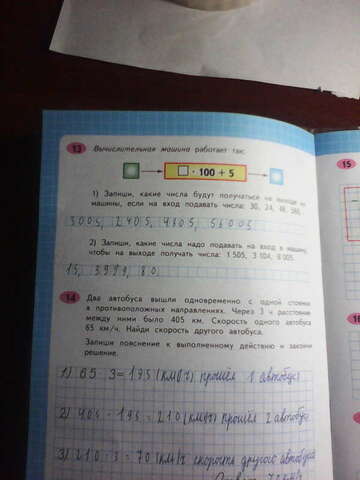 13 Вычислительная машина работает так:
□ · 100 + 5
1) Запиши, какие числа будут получаться на выходе из
машины, если на вход подавать числа: 30, 24, 46, 560.
3005, 2405, 4605, 56005
2) Запиши, какие числа надо подавать на вход в машину,
чтобы на выходе получать числа: 1 505, 3 104, 8 005.
15, 80.
14 Два автобуса вышли одновременно с одной стоянки
в противоположных направлениях. Через 3 ч расстояние
между ними было 405 км. Скорость одного автобуса
65 км/ч. Найди скорость другого автобуса.
Запиши пояснение к выполненному действию и закончи
решение.
1) 65 · 3 = 195 (км) прошёл 1 автобус
2) 405 - 195 = 210 (км) прошёл 2 автобус
3) 210 : 3 = 70 (км/ч) скорость другого автобуса
15
16